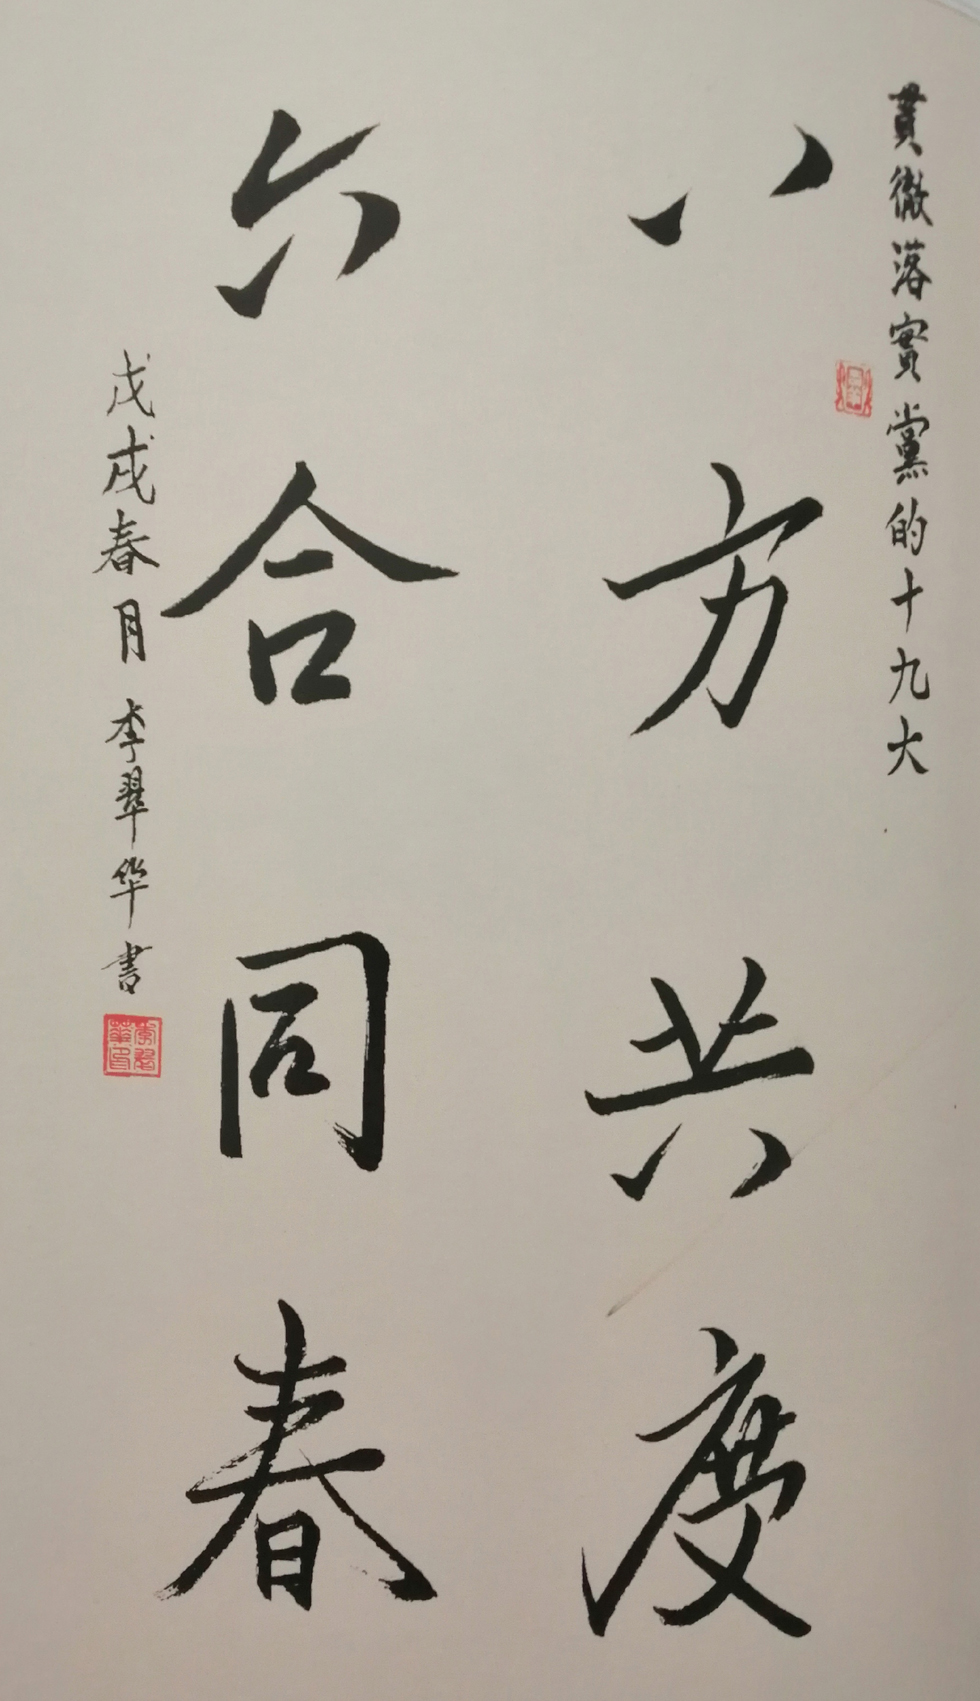 貫徹落實黨的十九大
八方共度
六合同春
戊戌春月 李翠华書